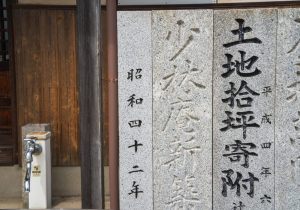 平成四年六
土地拾坪寄附
少林新築
昭和四十二年